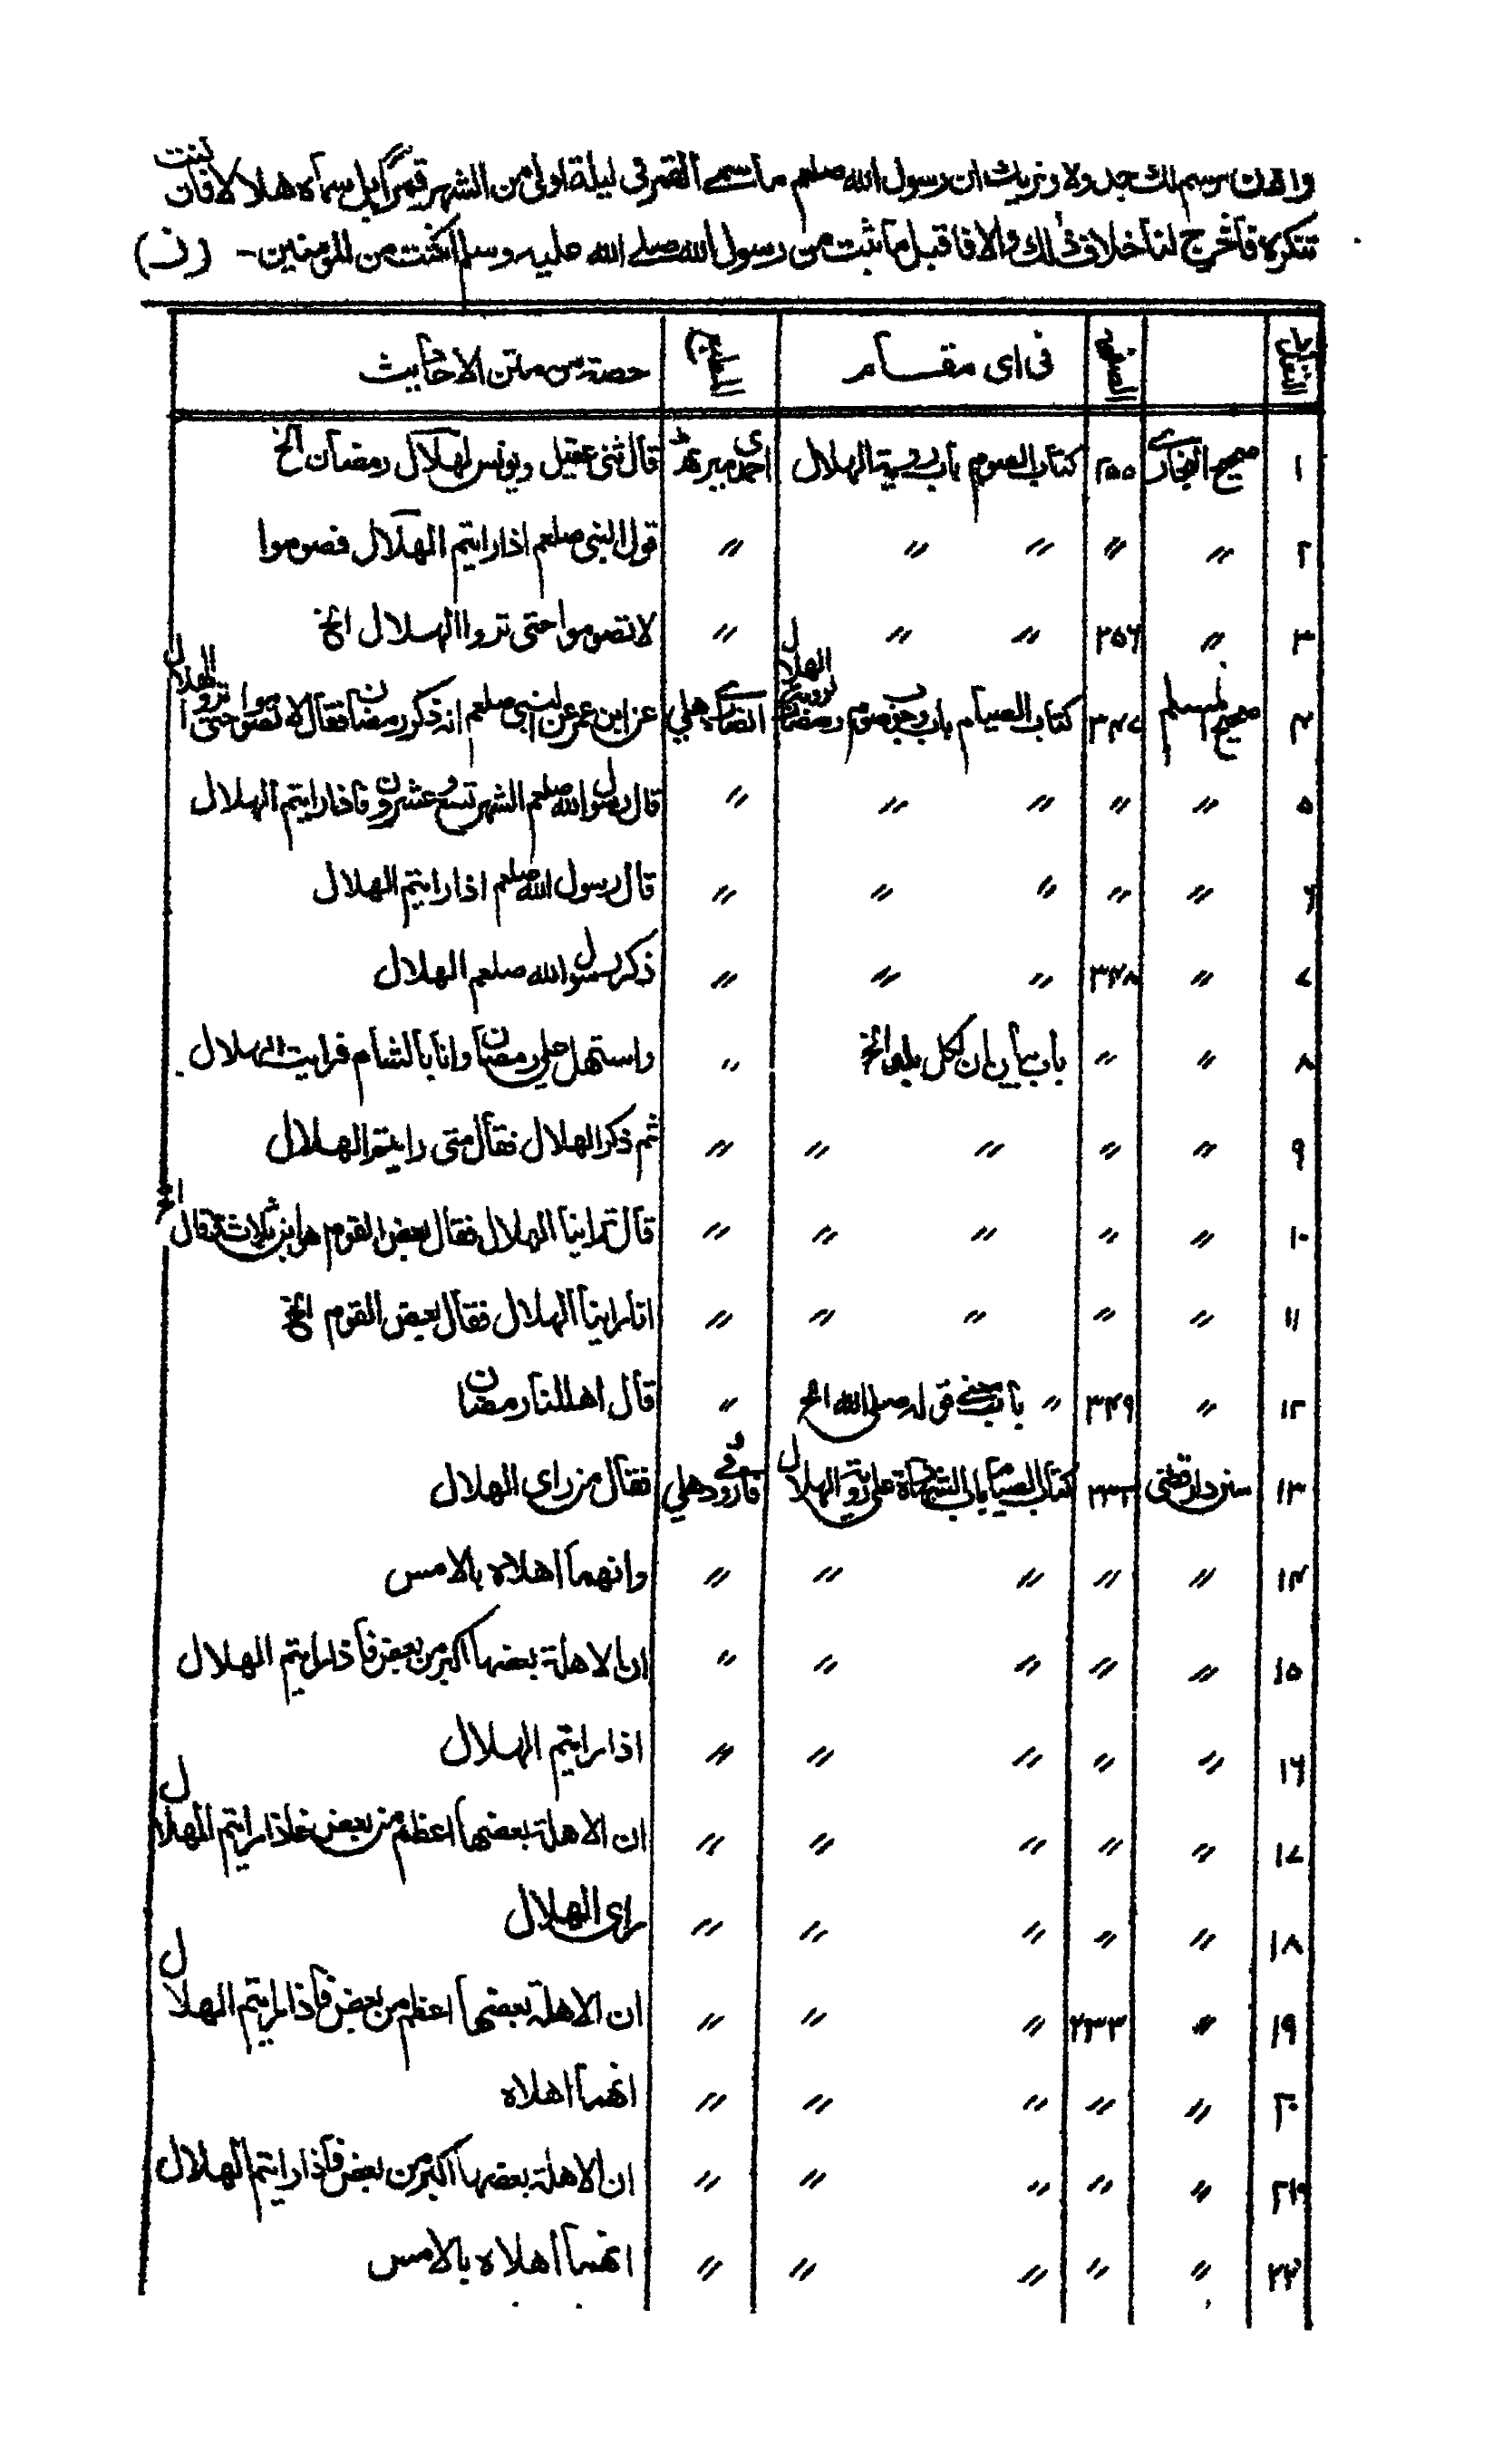 والآن نرسم لك جدولا ونريك ان رسول الله صلعم ما سمے القمر فی لیلة اولی من الشهر قمرًا بل سماه هلالا فان کنت
تنکره فأخرج لنا خلاف ذٰلك والا فاقبل ما ثبت من رسول الله صلے الله علیه وسلم ان کنت من المؤمنین - (ن)
الصفحة | فی ای مقام | المطبع | حصة من متن الاحادیث
۱ | صحیح البخاری | ۲۵۵ | کتاب الصوم باب رویة الهلال | احمدی میرٹھ | قال ثنی عقیل ویونس لهلال رمضان الخ
۲ | // | // | // // | // | قول النبی صلعم اذا رایتم الهلال فصوموا
۳ | // | ۲۵۶ | // // | // | لا تصوموا حتی تروا الهلال الخ
۴ | صحیح المسلم | ۳۴۷ | کتاب الصیام باب وجوب صوم رمضان لرویة الهلال | انصاری دهلی | عن ابن عمر عن النبی صلعم انه ذکر رمضان فقال لا تصوموا حتی تروا الهلال
۵ | // | // | // // | // | قال رسول الله صلعم الشهر تسع وعشرون فاذا رایتم الهلال
۶ | // | // | // // | // | قال رسول الله صلعم اذا رایتم الهلال
۷ | // | ۳۴۸ | // // | // | ذکر رسول الله صلعم الهلال
۸ | // | // | باب بیان ان لکل بلد الخ | // | واستهل علی رمضان وانا بالشام فرایت الهلال
۹ | // | // | // // | // | ثم ذکر الهلال فقال متی رایتم الهلال
۱۰ | // | // | // // | // | قال تراینا الهلال فقال بعض القوم هو ابن ثلاث وقال الخ
۱۱ | // | // | // // | // | انا راینا الهلال فقال بعض القوم الخ
۱۲ | // | ۳۴۹ | // باب معنے قوله صلی الله الخ | // | قال اهللنا رمضان
۱۳ | سنن دارقطنی | ۲۳۲ | کتاب الصیام باب الشهادة علی رویة الهلال | فاروقی دهلی | فقال من رای الهلال
۱۴ | // | // | // // | // | وانهما اهلاه بالامس
۱۵ | // | // | // // | // | ان الاهلة بعضها اکبر من بعض فاذا رایتم الهلال
۱۶ | // | // | // // | // | اذا رایتم الهلال
۱۷ | // | // | // // | // | ان الاهلة بعضها اعظم من بعض فاذا رایتم الهلال
۱۸ | // | // | // // | // | رای الهلال
۱۹ | // | ۲۳۳ | // // | // | ان الاهلة بعضها اعظم من بعض فاذا رایتم الهلال
۲۰ | // | // | // // | // | انهما اهلاه
۲۱ | // | // | // // | // | ان الاهلة بعضها اکبر من بعض فاذا رایتم الهلال
۲۲ | // | // | // // | // | انهما اهلاه بالامس